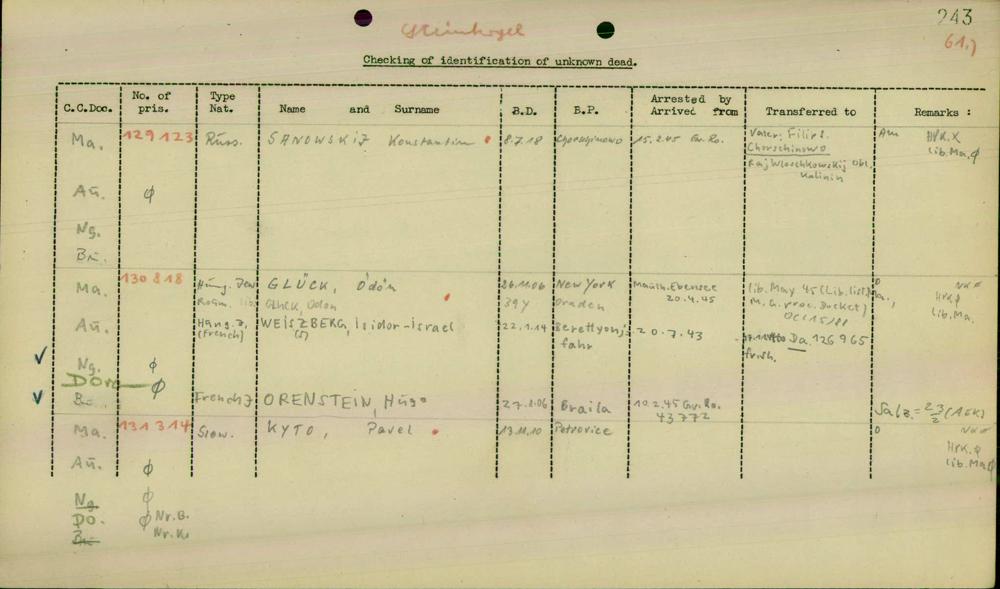 243
Steinkogel
61.)
Checking of identification of unknown dead.
C.C.Doc. No. of pris. Type Nat. Name and Surname B.D. B.P. Arrested by Arrived from Transferred to Remarks :
Ma. 129 123 Russ. SANOWSKIJ Konstantin 8.7.18 Chorschinowo 15.2.45 Gr. Ro. Vater: Filip S. Am HPK. X
Chorschinowo lib. Ma. ϕ
Raj Wloschkowskij Obl,
Kalinin
Au. ϕ
Ng.
Bu.
Ma. 130 818 Hung. Jew GLÜCK, Ödön 26.11.06 New York Mauth. Ebensee lib. May 45 (Lib. list) NK
Glück, Odon 39 y Oraden 20.4.45 HPK ϕ
lib. Ma.
Au. Hung. J. WEISZBERG, Isidor-Israel 22.1.14 Berettyonj- 20.7.43 Da. 126 965
(French) (S) fahr
Ng. ϕ
Dora ϕ
Bu. French J ORENSTEIN, Hugo 27.2.06 Braila 10.2.45 Gr. Ro.
43772
Ma. 131 314 Slow. KYTO, Pavel 13.11.10 Petrovice 0 NK
HPK. ϕ
lib. Ma. ϕ
Au. ϕ
Ng. ϕ
DO. ϕ Nr. B.
Bu. Nr. K.